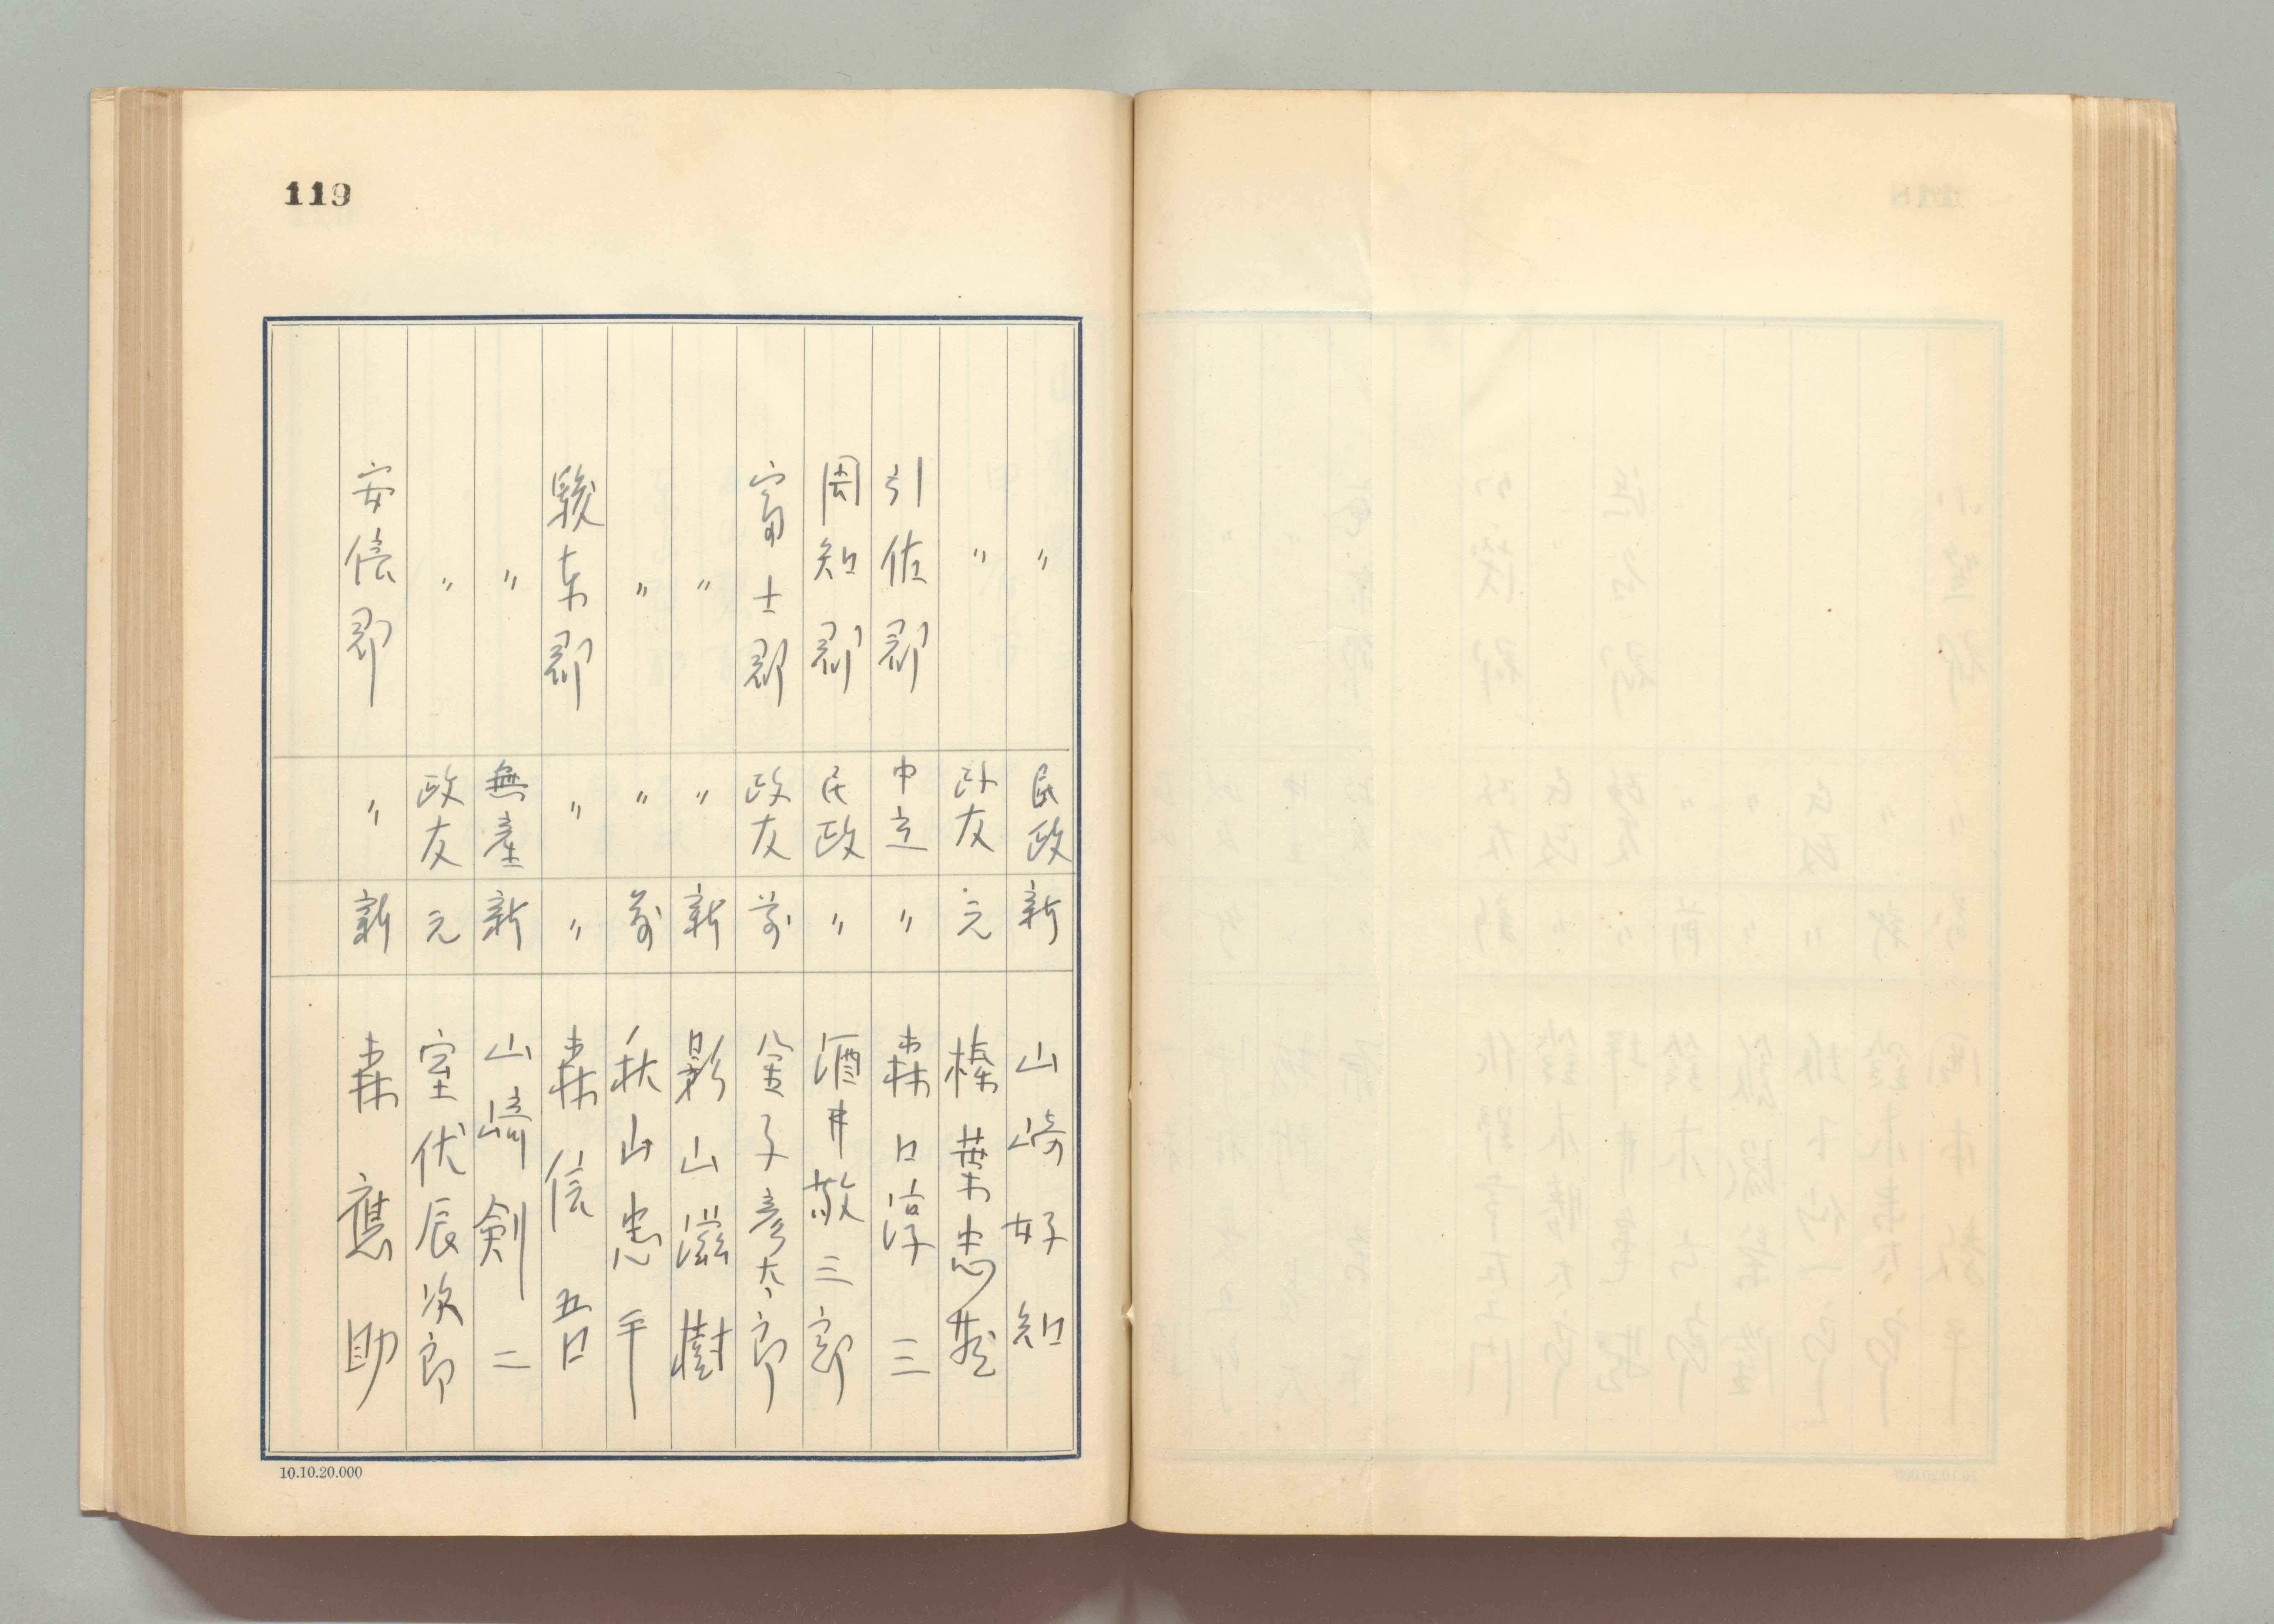 119
〃 民政 新 山崎好知
〃 政友 元 榛葉忠藏
引佐郡 中立 〃 森口淳三
周知郡 民政 〃 酒井敬三郎
富士郡 政友 前 金子彦太郎
〃 〃 新 影山滋樹
〃 〃 前 秋山忠平
駿東郡 〃 〃 森信吾
〃 無産 新 山崎剣二
〃 政友 元 室伏辰次郎
安倍郡 〃 新 森應助
10.10.20.000